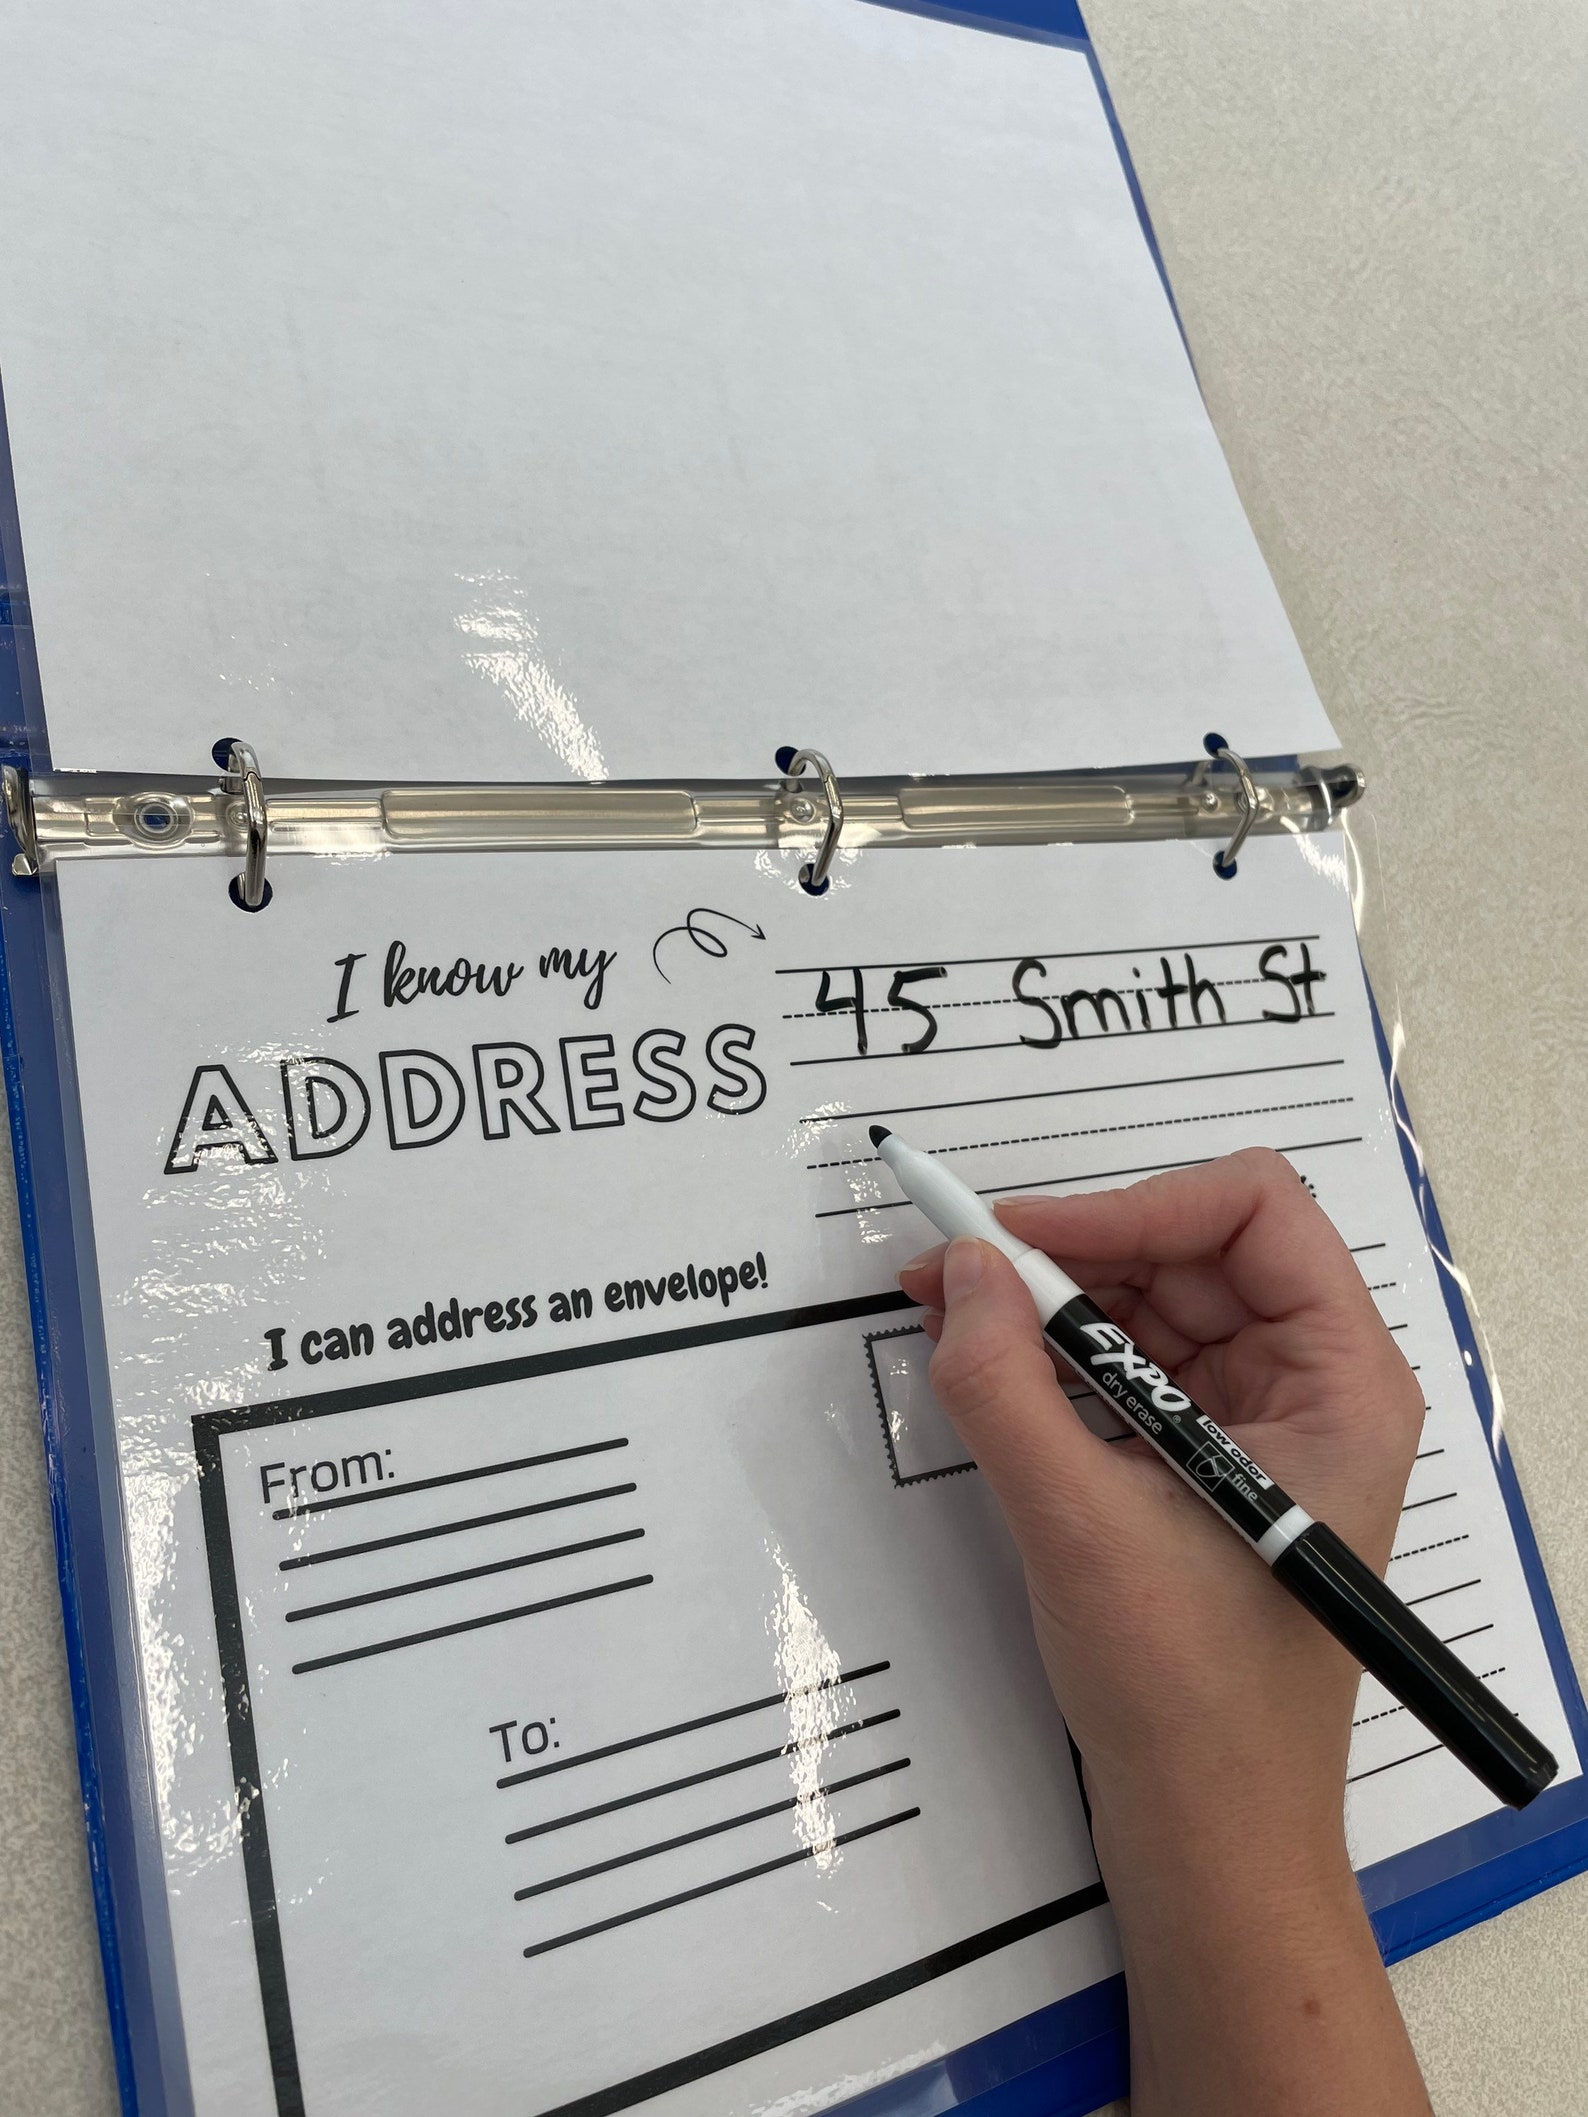 I know my
ADDRESS
45 Smith St
I can address an envelope!
From:
To:
EXPO®
dry erase
low odor
fine